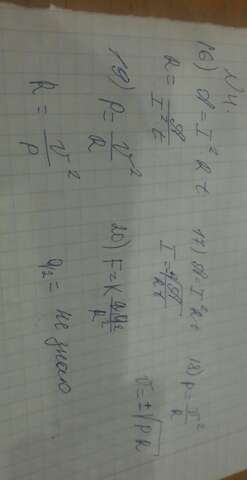 N4.
16) A = I² R t
R = A / I² t
17) A = I² R t
I = √A / R t
18) P = U² / R
U = ±√P R
19) P = U² / R
R = U² / P
20) F = K q₁q₂ / R²
q₂ = не знаю